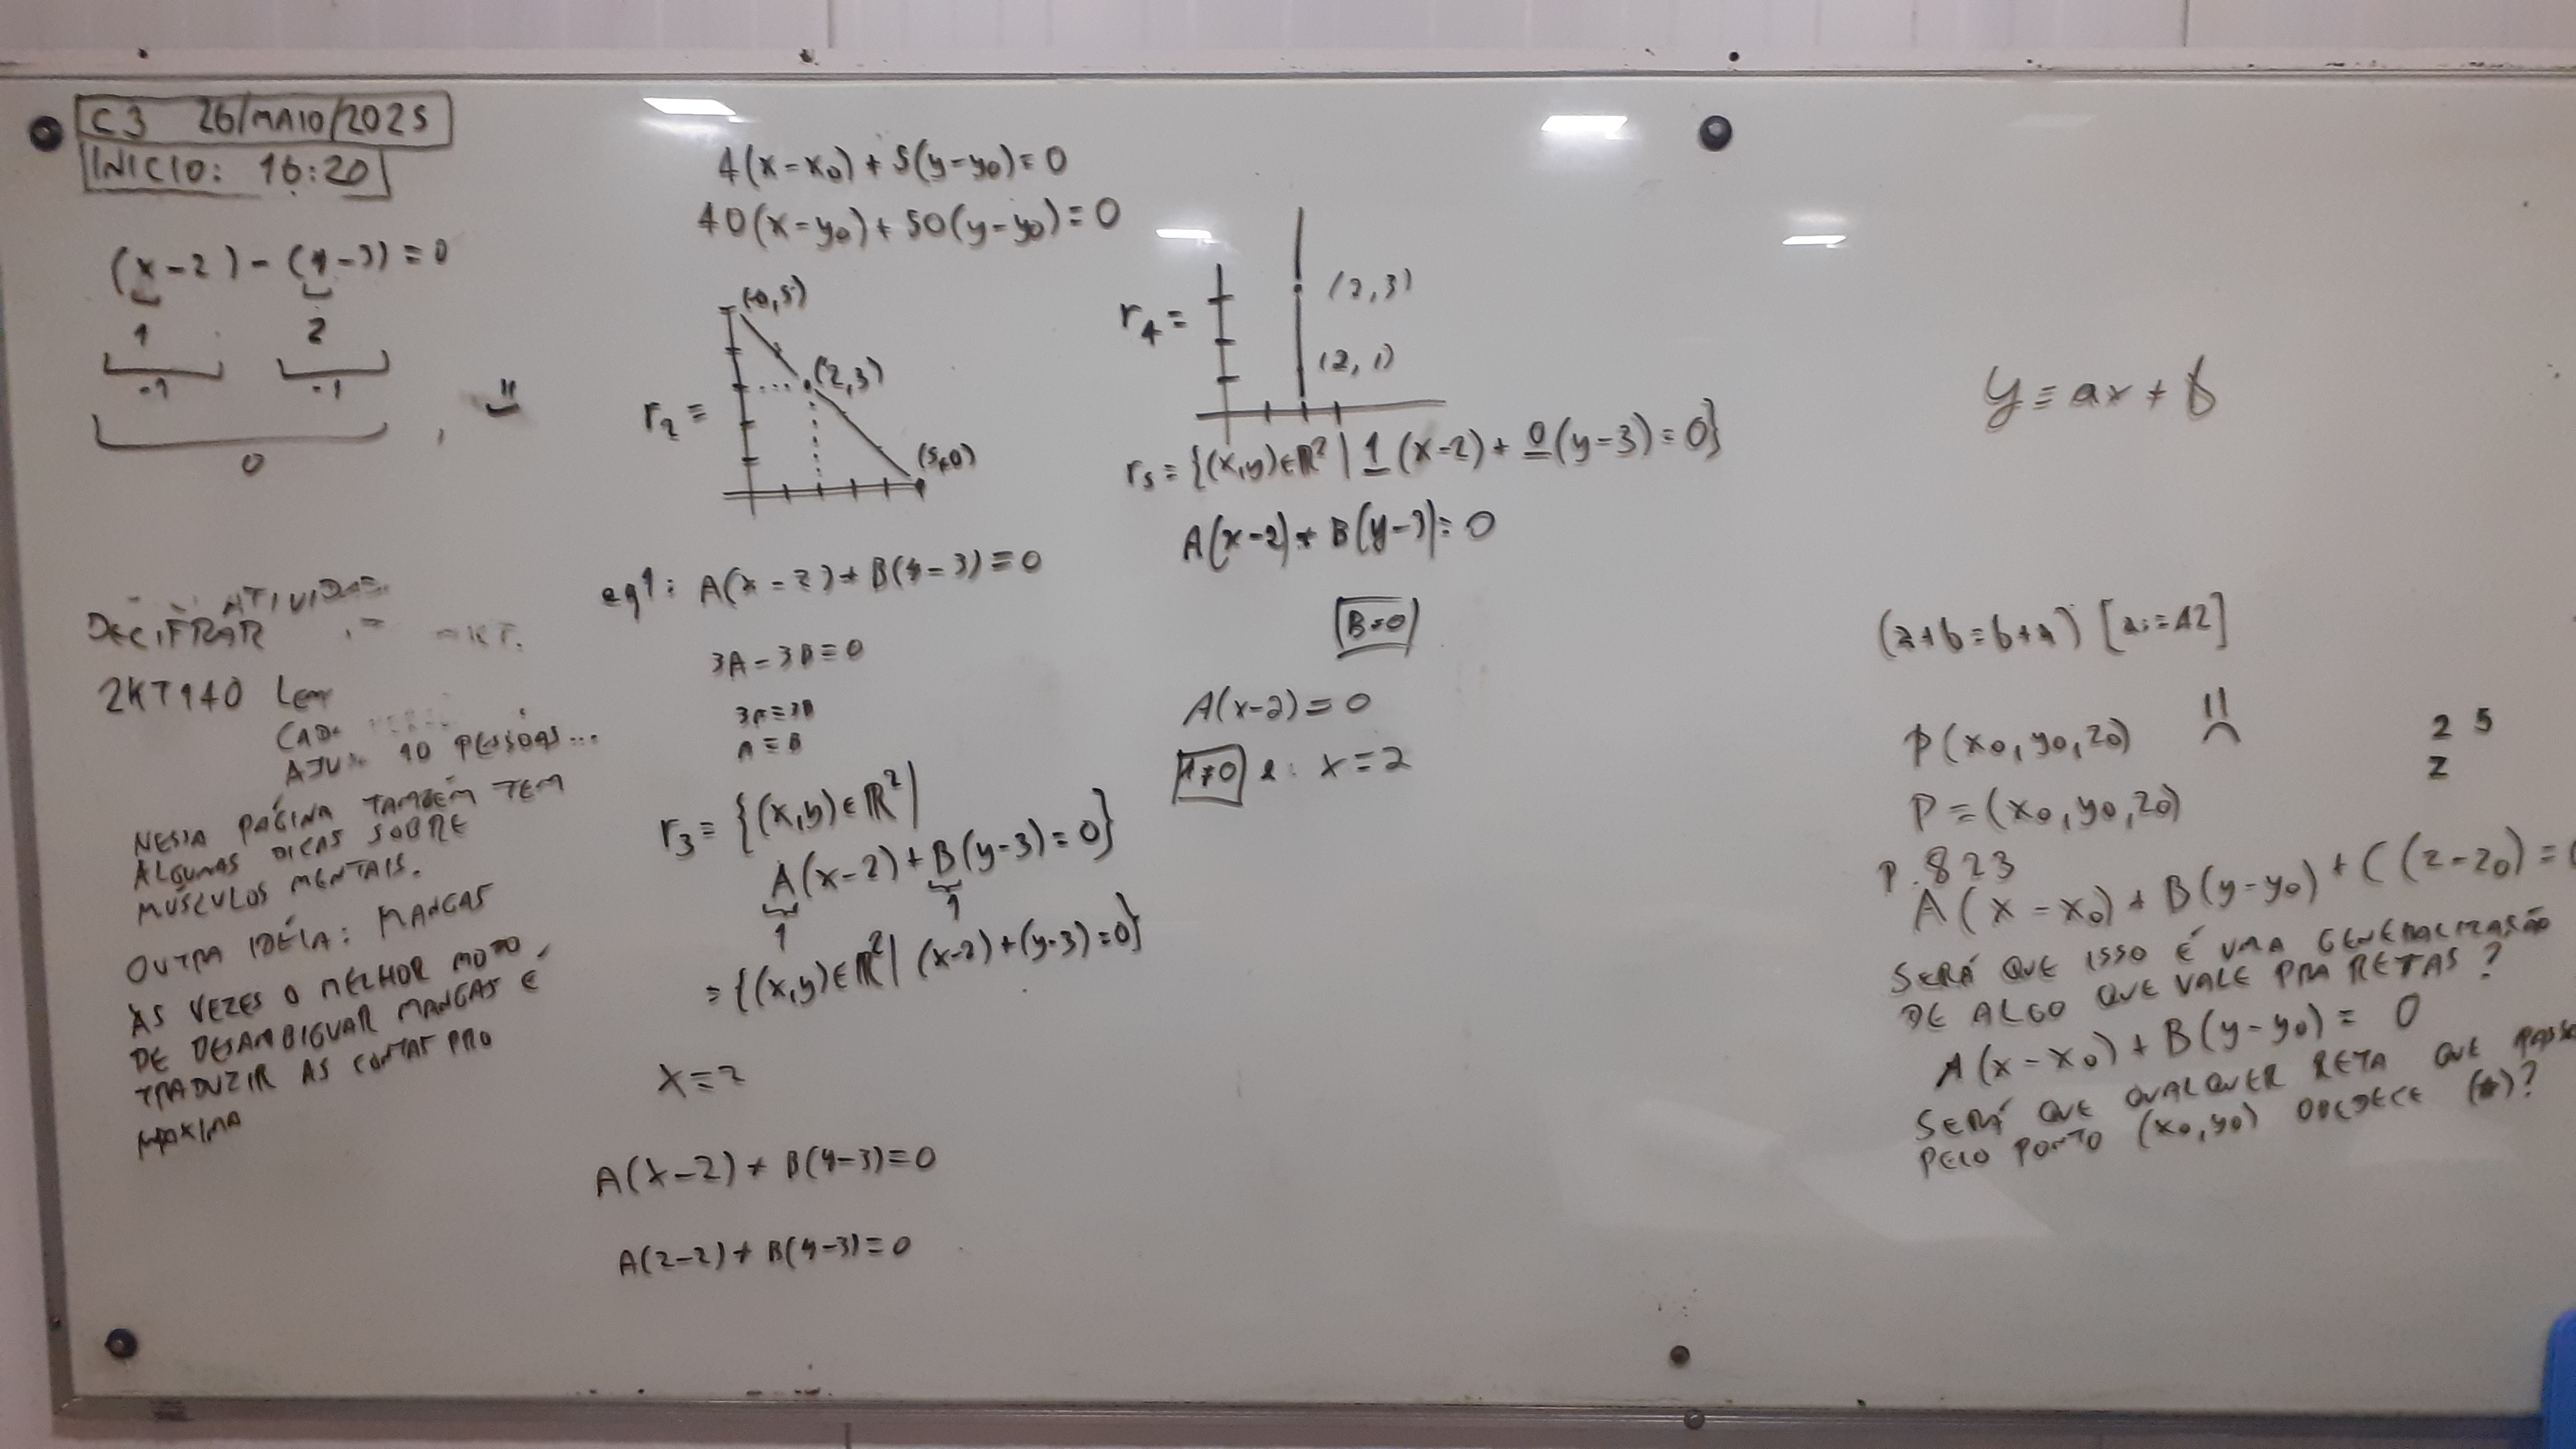 C3 26/MAIO/2025
INICIO: 16:20
(x-2)-(y-3)=0
1 2
-1 -1
0
DECIFRAR
2KT140
10 PESSOAS...
NESSA PÁGINA TAMBÉM TEM
ALGUMAS DICAS SOBRE
MÚSCULOS MENTAIS.
OUTRA IDÉIA: MANGAS
ÀS VEZES O MELHOR MODO
DE DESAMBIGUAR MANGAS É
TRADUZIR AS CONTAS PRO
MAXIMA
4(x-x₀)+5(y-y₀)=0
40(x-y₀)+50(y-y₀)=0
r₂=
(0,5)
(2,3)
(5,0)
eq1: A(x-2)+B(y-3)=0
3A-3B=0
3A=3B
A=B
r₃={(x,y)∈ℝ²|
A(x-2)+B(y-3)=0}
1 1
={(x,y)∈ℝ²| (x-2)+(y-3)=0}
x=2
A(x-2)+B(y-3)=0
A(2-2)+B(y-3)=0
r₄=
(2,3)
(2,1)
r₅={(x,y)∈ℝ²|1(x-2)+0(y-3)=0}
A(x-2)+B(y-3)=0
B=0
A(x-2)=0
A≠0 e: x=2
y=ax+b
(a+b=b+a) [a:=42]
P(x₀,y₀,z₀)
2 5
z
P=(x₀,y₀,z₀)
P.823
A(x-x₀)+B(y-y₀)+C(z-z₀)=
SERÁ QUE ISSO É UMA GENERALIZAÇÃO
DE ALGO QUE VALE PRA RETAS?
A(x-x₀)+B(y-y₀)=0
SERÁ QUE QUALQUER RETA QUE PASSE
PELO PONTO (x₀,y₀) OBEDECE (*)?